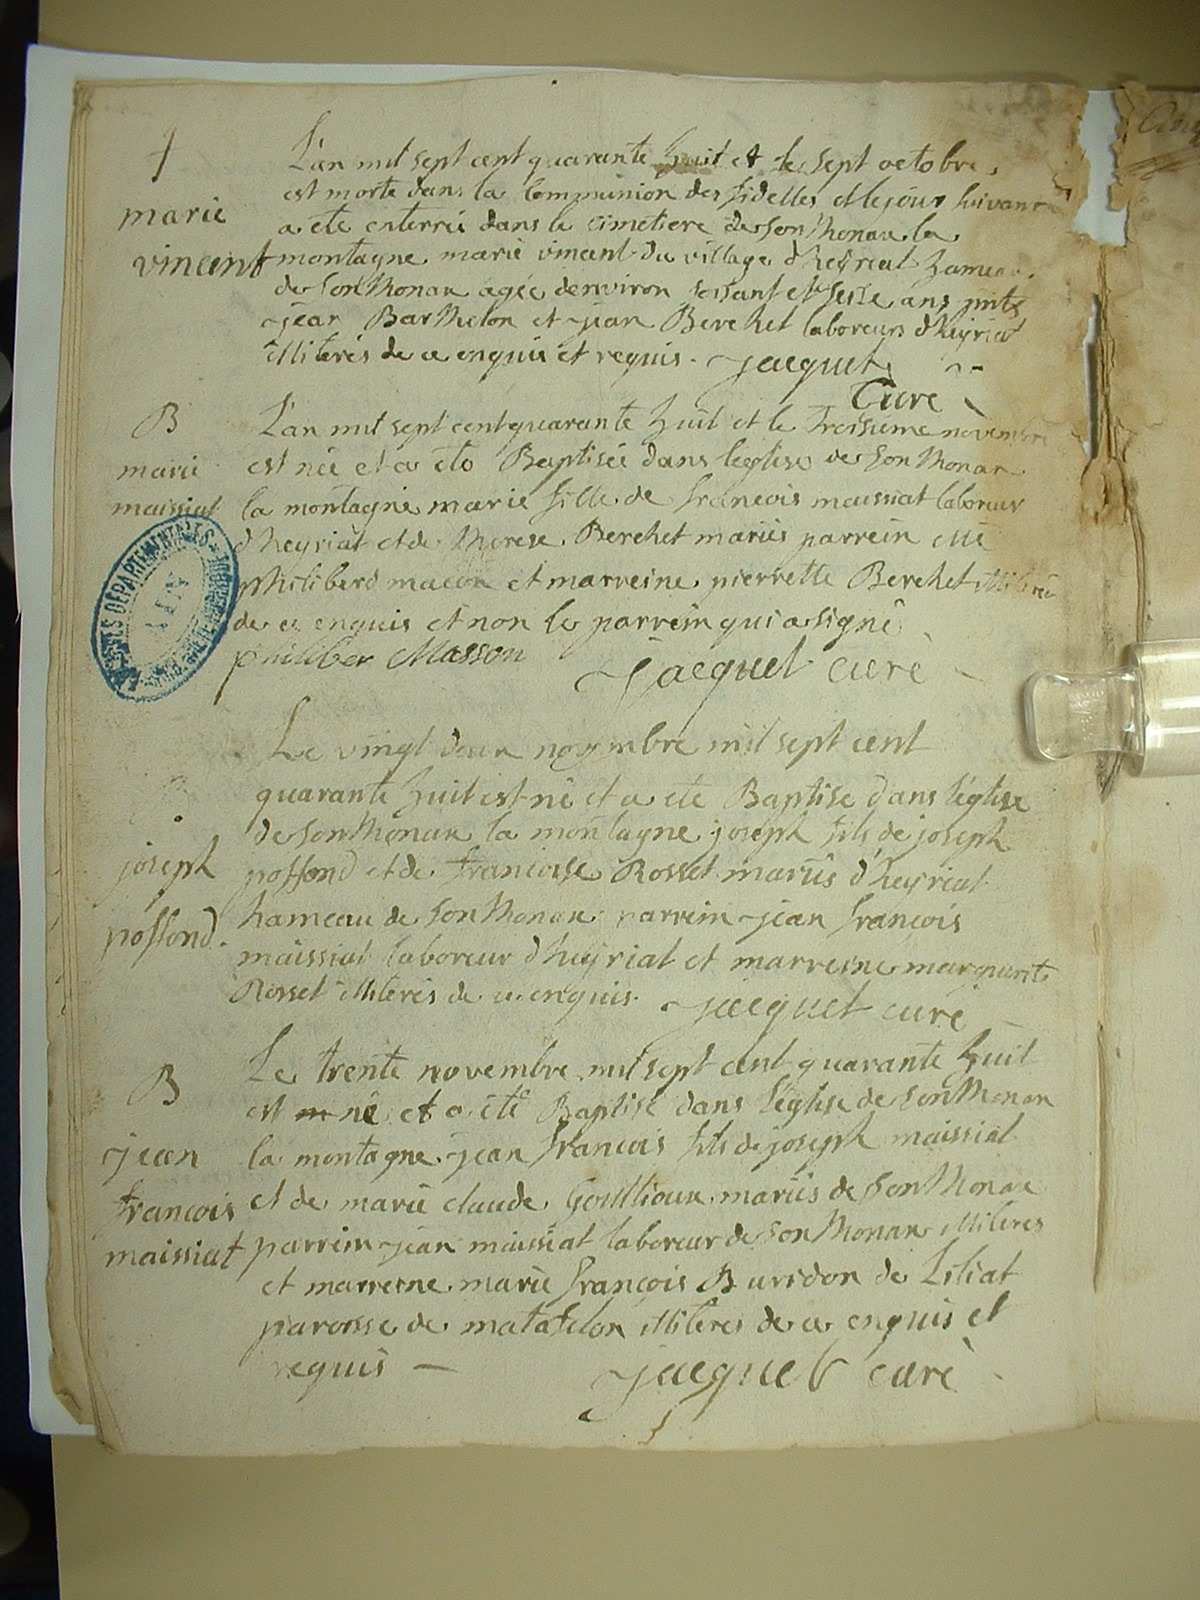 †
marie
vincent
L'an mil sept cent quarante huit et le sept octobre
est morte dans la Communion des fidelles et le jour suivant
a été enterreé dans le cimetiere de SonThonax la
montagne marie vincent du village d'heyriat hameau
de SonThonax agée denviron soissant et seize ans pnts
jean Barthelon et jean Berchet laboreurs d'heyriat
illiterés de ce enquis et requis. Jacquet
Curé
B
marie
maissiat
L'an mil sept cent quarante huit et le Troisieme novembre
est née et a été Baptisée dans l'eglise de SonThonax
la montagne marie fille de francois maissiat laboreur
d'heyriat et de Therese Berchet mariés parrein
philiberd macon et marreine pierrette Berchet illiterés
de ce enquis et non le parrein qui a signé
philiber Masson Jacquet curé
ARCHIVES DÉPARTEMENTALES
AIN
joseph
poffond
Le vingt deux novembre mil sept cent
quarante huit est né et a été Baptisé dans l'église
de SonThonax la montagne joseph fils de joseph
poffond et de francoise Rosset mariés d'heyriat
hameau de SonThonax parrein jean françois
maissiat laboreur d'heyriat et marreine margueritte
Rosset illiterés de ce enquis. Jacquet curé
B
jean
francois
maissiat
Le trente novembre mil sept cent quarante huit
est né et a été Baptisé dans l'église de SonThonax
la montagne jean francois fils de joseph maissiat
et de marie claude Goullioux mariés de SonThonax
parrein jean maissiat laboreur de SonThonax illiteres
et marreine marie françois Buridon de Liliat
paroisse de matafelon illiteres de ce enquis et
requis — Jacquet curé